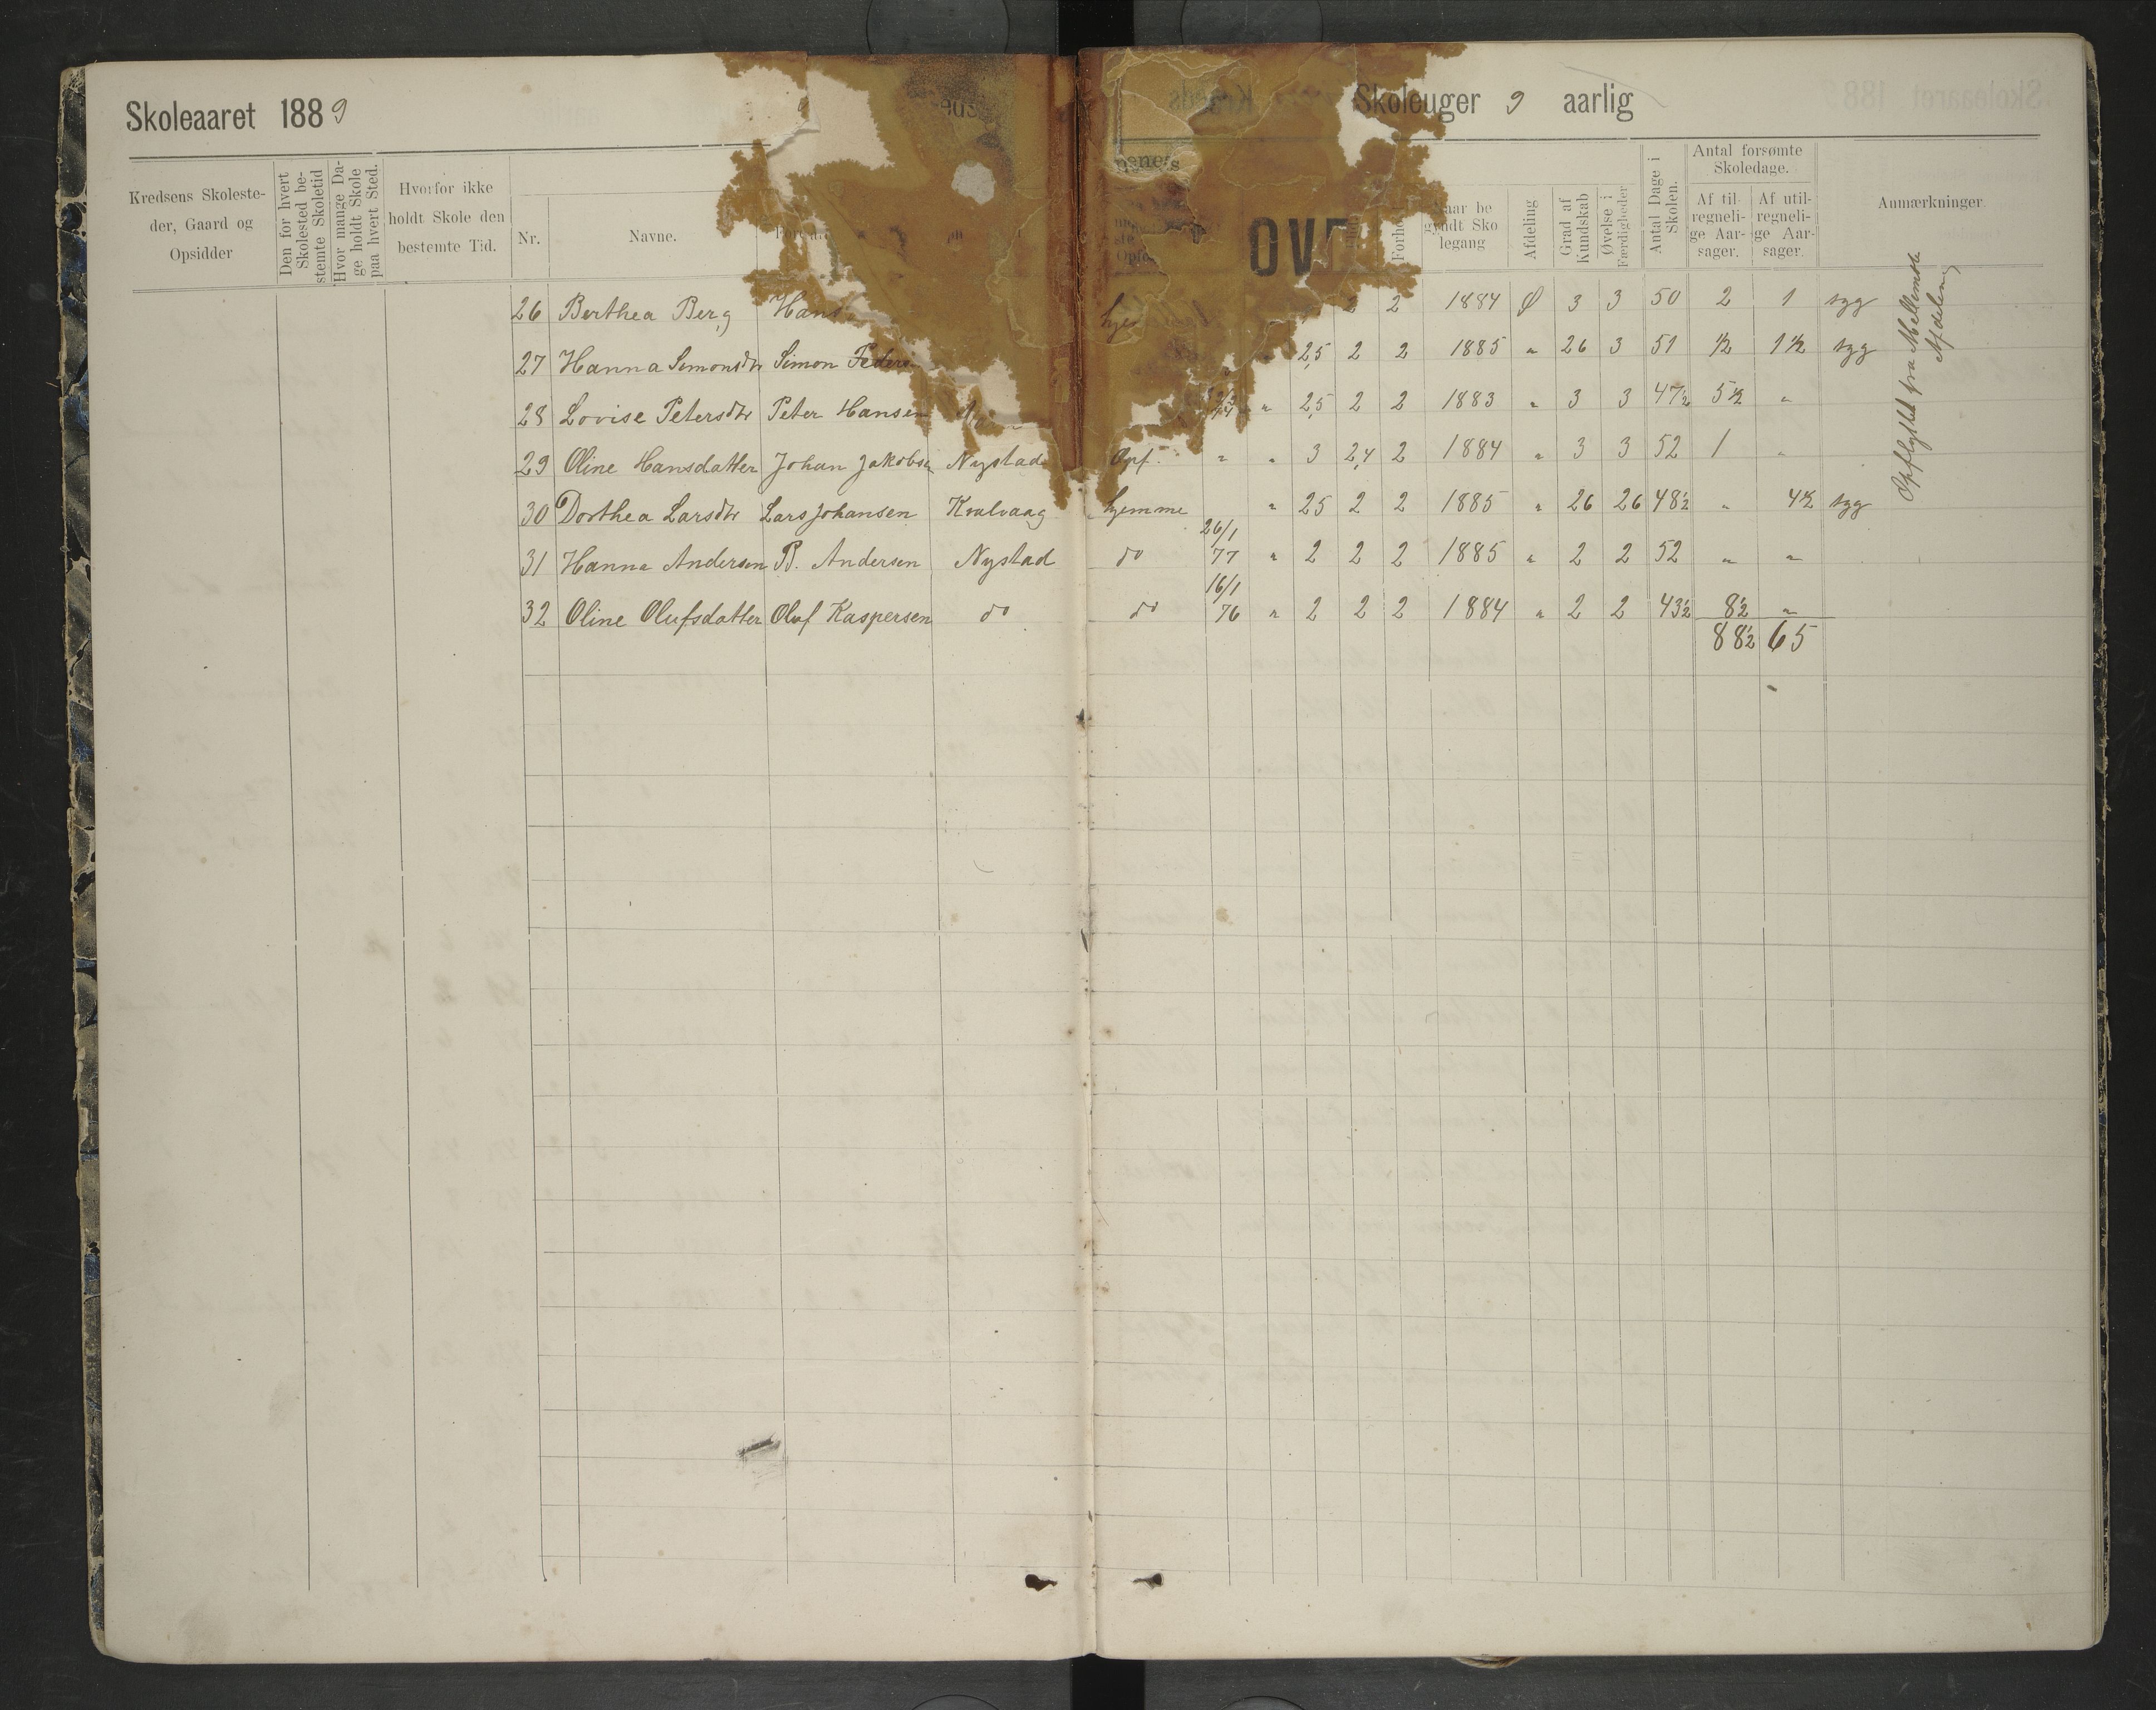 Skoleaaret 1889
Skoleuger 9 aarlig
Kredsens Skoleste-
der, Gaard og
Opsidder
Den for hvert
Skolested be-
stemte Skoletid
Hvor mange Da-
ge holdt Skole
paa hvert Sted.
Hvorfor ikke
holdt Skole den
bestemte Tid.
Nr.
Navne.
OVE
Forho
gyndt Sko
legang
Afdeling
Grad af
Kundskab
Øvelse i
Færdigheder
Antal Dage i
Skolen.
Antal forsømte
Skoledage.
Af til-
regneli-
ge Aar-
sager.
Af util-
regneli-
ge Aar-
sager.
Anmærkninger.
26 Berthea Berg Hans 2 1884 Ø 3 3 50 2 1 syg
27 Hanna Simonsdtr Simon Peders 2,5 2 2 1885 " 26 3 51 ½ 1½ syg
28 Lovise Petersdtr Peter Hansen " 2,5 2 2 1883 " 3 3 47½ 5½ "
29 Oline Hansdatter Johan Jakobsn Nystad Opf. " " 3 2,4 2 1884 " 3 3 52 1 "
30 Dorthea Larsdtr Lars Johansen Kvalvaag hjemme " 25 2 2 1885 " 26 26 48½ " 4½ syg
31 Hanna Andersen P. Andersen Nystad do 26/1 77 " 2 2 2 1885 " 2 2 52 " "
32 Oline Olufsdatter Oluf Kaspersen do do 16/1 76 " 2 2 2 1884 " 2 2 43½ 8½ "
88½ 65
Opflyttet fra Mellemste
Afdeling